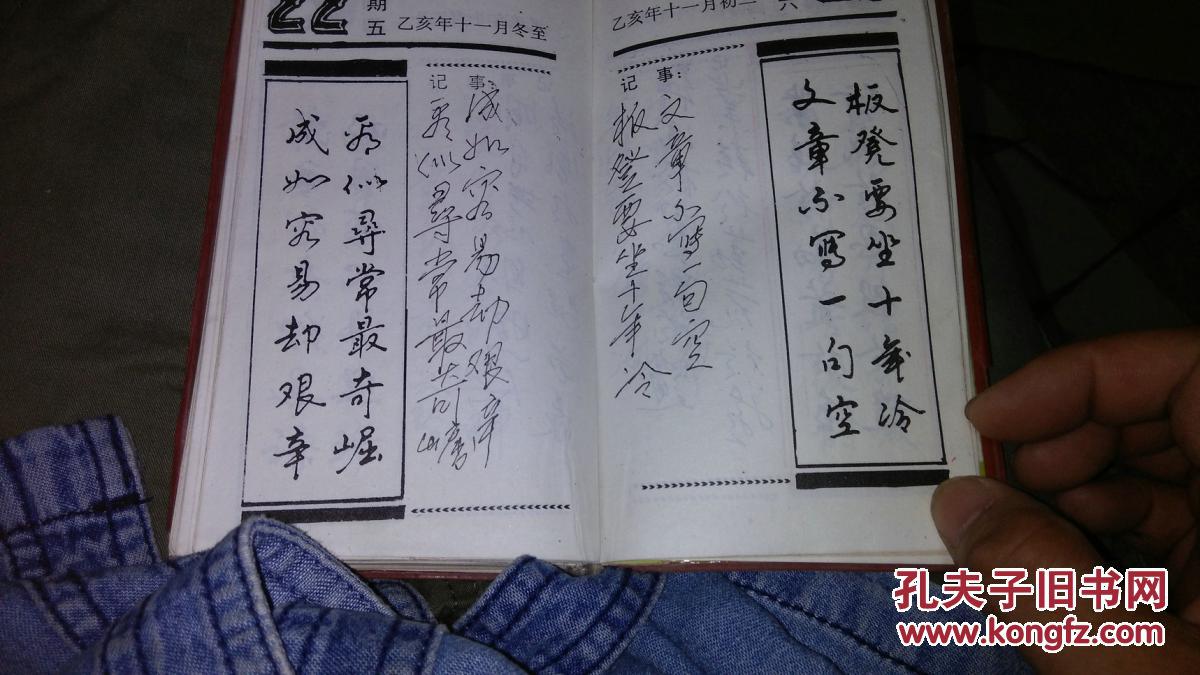 22
期五
乙亥年十一月冬至
看似尋常最奇崛
成如容易却艰辛
记 事:
成如容易却艰辛
看似尋常最奇崛
乙亥年十一月初二
六
记 事:
文章不写一句空
板凳要坐十年冷
板凳要坐十年冷
文章不写一句空
孔夫子旧书网
www.kongfz.com